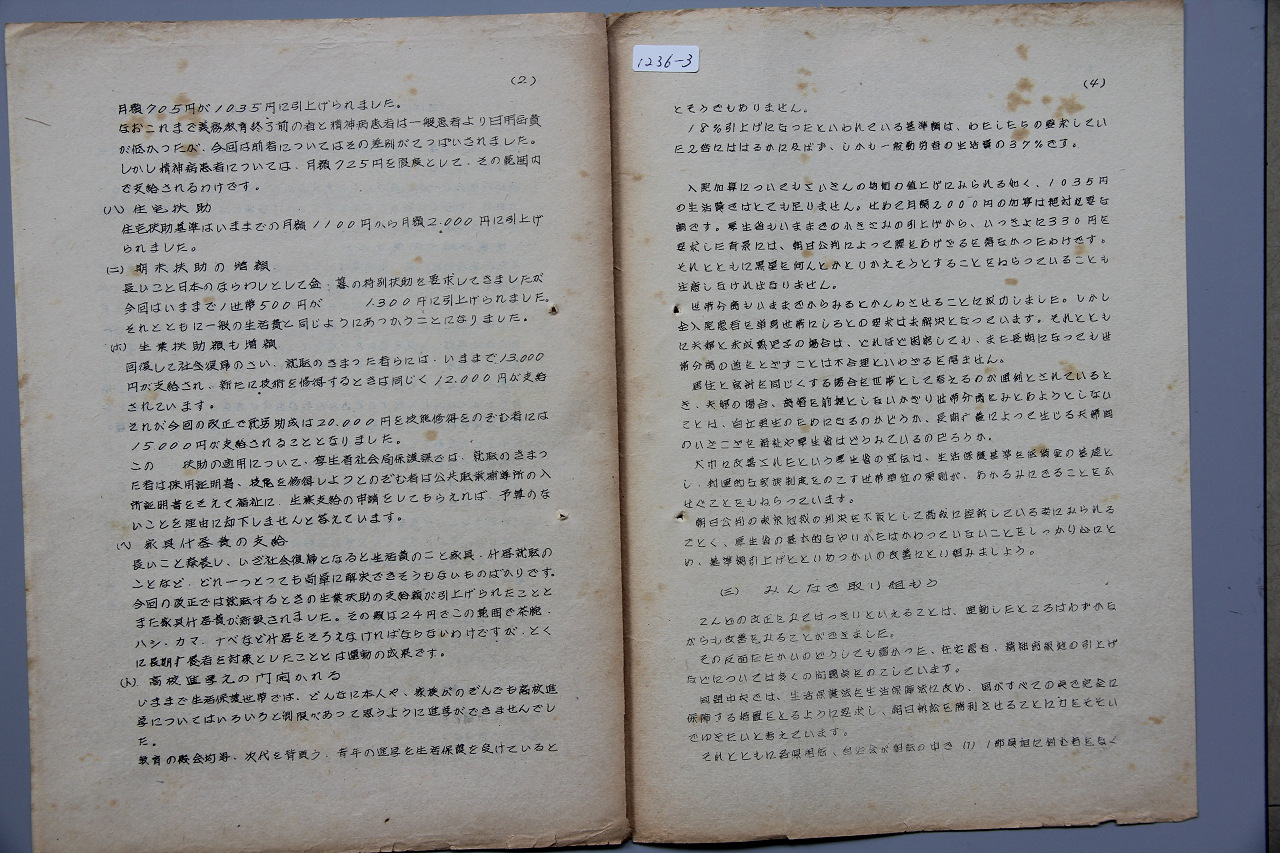 (2)
月額705円が1035円に引上げられました。
なおこれまで義務教育終了前の者と精神病患者は一般患者より日用品費
が低かったが、今回は前者についてはその差別がてっぱいされました。
しかし精神病患者については、月額725円を限度として、その範囲内
で支給されるわけです。
(ハ) 住宅扶助
住宅扶助基準はいままでの月額1100円から月額2.000円に引上げ
られました。
(ニ) 期末扶助の増額
長いこと日本のならわしとして盆、暮の特別扶助を要求してきましたが
今回はいままで1世帯500円が 1.300円に引上げられました。
それとともに一般の生活費と同じようにあつかうことになりました。
(ホ) 生業扶助額も増額
回復して社会復帰のさい、就職のきまった者らには、いままで13,000
円が支給され、新たに技術を修得するときは同じく12.000円が支給
されています。
それが今回の改正で就労助成は20.000円を技能修得をのぞむ者には
15.000円が支給されることとなりました。
この 扶助の適用について、厚生省社会局保護課では、就職のきまっ
た者は採用証明書、技能を修得しようとのぞむ者は公共職業補導所の入
所証明書をそえて福祉に、生業支給の申請をしてもらえれば、予算のな
いことを理由に却下しませんと答えています。
(ヘ) 家具什器費の支給
長いこと療養し、いざ社会復帰となると生活費のこと家具、什器就職の
ことなど、どれ一つとっても簡単に解決できそうもないものばかりです。
今回の改正では就職するときの生業扶助の支給額が引上げられたことと
また家具什器費が新設されました。その額は24円でこの範囲で茶腕、
ハシ、カマ、ナベなど什器をそろえなければならないわけですが、とく
に長期療養者を対象としたこととは運動の成果です。
(ト) 高校進学えの門開かれる
いままで生活保護世帯では、どんなに本人や、家族がのぞんでも高校進
学についてはいろいろと制限があって思うように進学ができませんでし
た。
教育の機会均等、次代を背負う、青年の進学を生活保護を受けていると
1236-3
(4)
とそうでもありません。
18%引上げになったといわれている基準額は、わたしたちの要求してい
た2倍にははるかに及ばず、しかも一般勤労者の生活費の37%です。
入院加算についてもさいきんの物価の値上げにみられる如く、1035円
の生活費ではとても足りません。せめて月額2000円の加算は絶対必要な
額です。厚生省もいままでの小きざみの引上げから、いっきょに330円を
要求した背景には、朝日公判によって腰をあげざるを得なかったわけです。
それとともに黒星を何んとかとりかえそうとすることをねらっていることも
注意しなければなりません。
世帯分離もいままでからみるとかんわさせることに成功しました。しかし
全入院患者を単身世帯にしろとの要求は未解決となっています。それととも
に夫婦と未成熟児の場合は、どれほど困窮しても、また長期になっても世
帯分離の道をとざすことは不合理といわざるを得ません。
居住と家計を同じくする場合を世帯として考えるのが原則とされていると
き、夫婦の場合、離婚を前提としないかぎり世帯分離をみとめようとしない
ことは、自立更生のためになるのかどうか、長期療養によって生じる夫婦間
のいざこざを福祉や厚生省はどうみているのだろうか。
大巾に改善されたという厚生省の宣伝は、生活保護基準を低賃金の基礎と
し、封建的な家族制度をのこす世帯単位の原則が、あかるみにでることをふ
せぐことをもねらっています。
朝日公判の東京地裁の判決を不服として高裁に控訴している姿にみられる
ごとく、厚生省の基本的なやりかたはかわっていないことをしっかり心にと
め、基準額引上げとといめつかいの改善にとり組みましょう。
(三) みんなで取り組もう
こんどの改正をみてはっきりといえることは、運動したところはわずかな
がらも改善をみることができました。
その反面たたかいのどうしても弱かった、住宅扶助、精神病級地の引上げ
などについては多くの問題をのこしています。
同盟中央では、生活保護法を生活保障法に改め、国がすべての点で完全に
保障する措置をとるように要求し、朝日訴訟を勝利させることに力をそそい
でゆきたいと考えています。
それとともに各県患同、